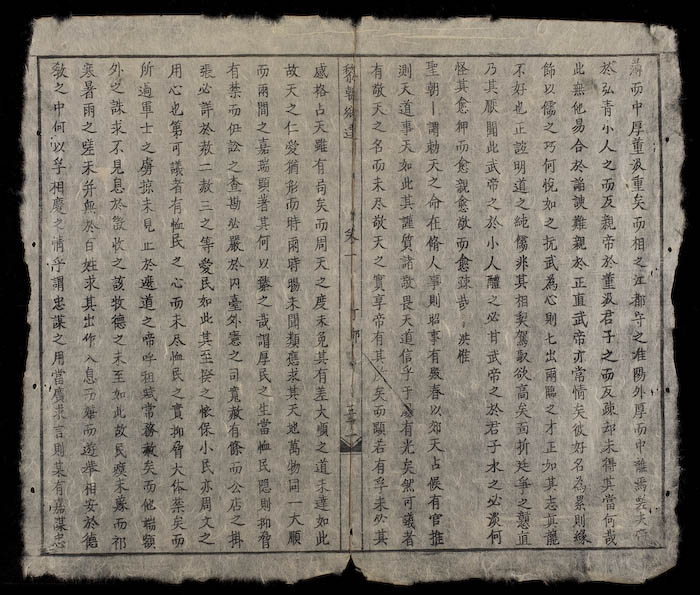 薄而中厚董汲重矣而相之江都守之淮陽外厚而中離焉
於弘青小人之而反親帝於董汲君子之而反疎却未得其當何哉
此無他易合於諂諛難親於正直武帝亦常情矣彼好名為累則緣
飾以儒之巧何悅如之抗武為心則七出兩臨之才正如其志真龍
不好也正誼明道之純儒非其相契駕馭欲高矣面折廷爭之戇直
乃其厭聞此武帝之於小人醴之必甘武帝之於君子水之必淡何
怪其愈狎而愈親愈敬而愈疎哉洪惟
聖朝謂勅天之命在脩人事則昭事有殿春以郊天占候有官推
測天道事天如此其謹質諸敬畏天道信乎于有光矣然可議者
有敬天之名而未尽敬天之實享帝有其矣而顒若有孚未必其
黎朝鄉選 卷一
感格占天雖有司矣而周天之度未免其有差大順之道未達如此
故天之仁愛猶形而時雨時暘未聞類應求其天地萬物同一大順
而兩間之嘉瑞顯著其何以臻之哉謂厚民之生當恤民隱則抑脅
有禁而征訟之查勘必嚴於內臺外憲之司寬赦有條而公店之掛
張必詳於赦二赦三之等愛民如此其至揆之懷保小民亦周文之
用心也第可議者有恤民之心而未尽恤民之實抑脅大体禁矣而
所過軍士之虜掠未見止於邇道之啼呼租賦常務赦矣而他端額
外之誅求不見息於徵收之該牧德之未至如此故民瘼未蘇而祁
寒暑雨之嗟未并無於百姓求其出作入息而嬉而遊舉相安於德
敎之中何以孚相慶之情乎謂忠謀之用當廣求言則某有嘉謀忠